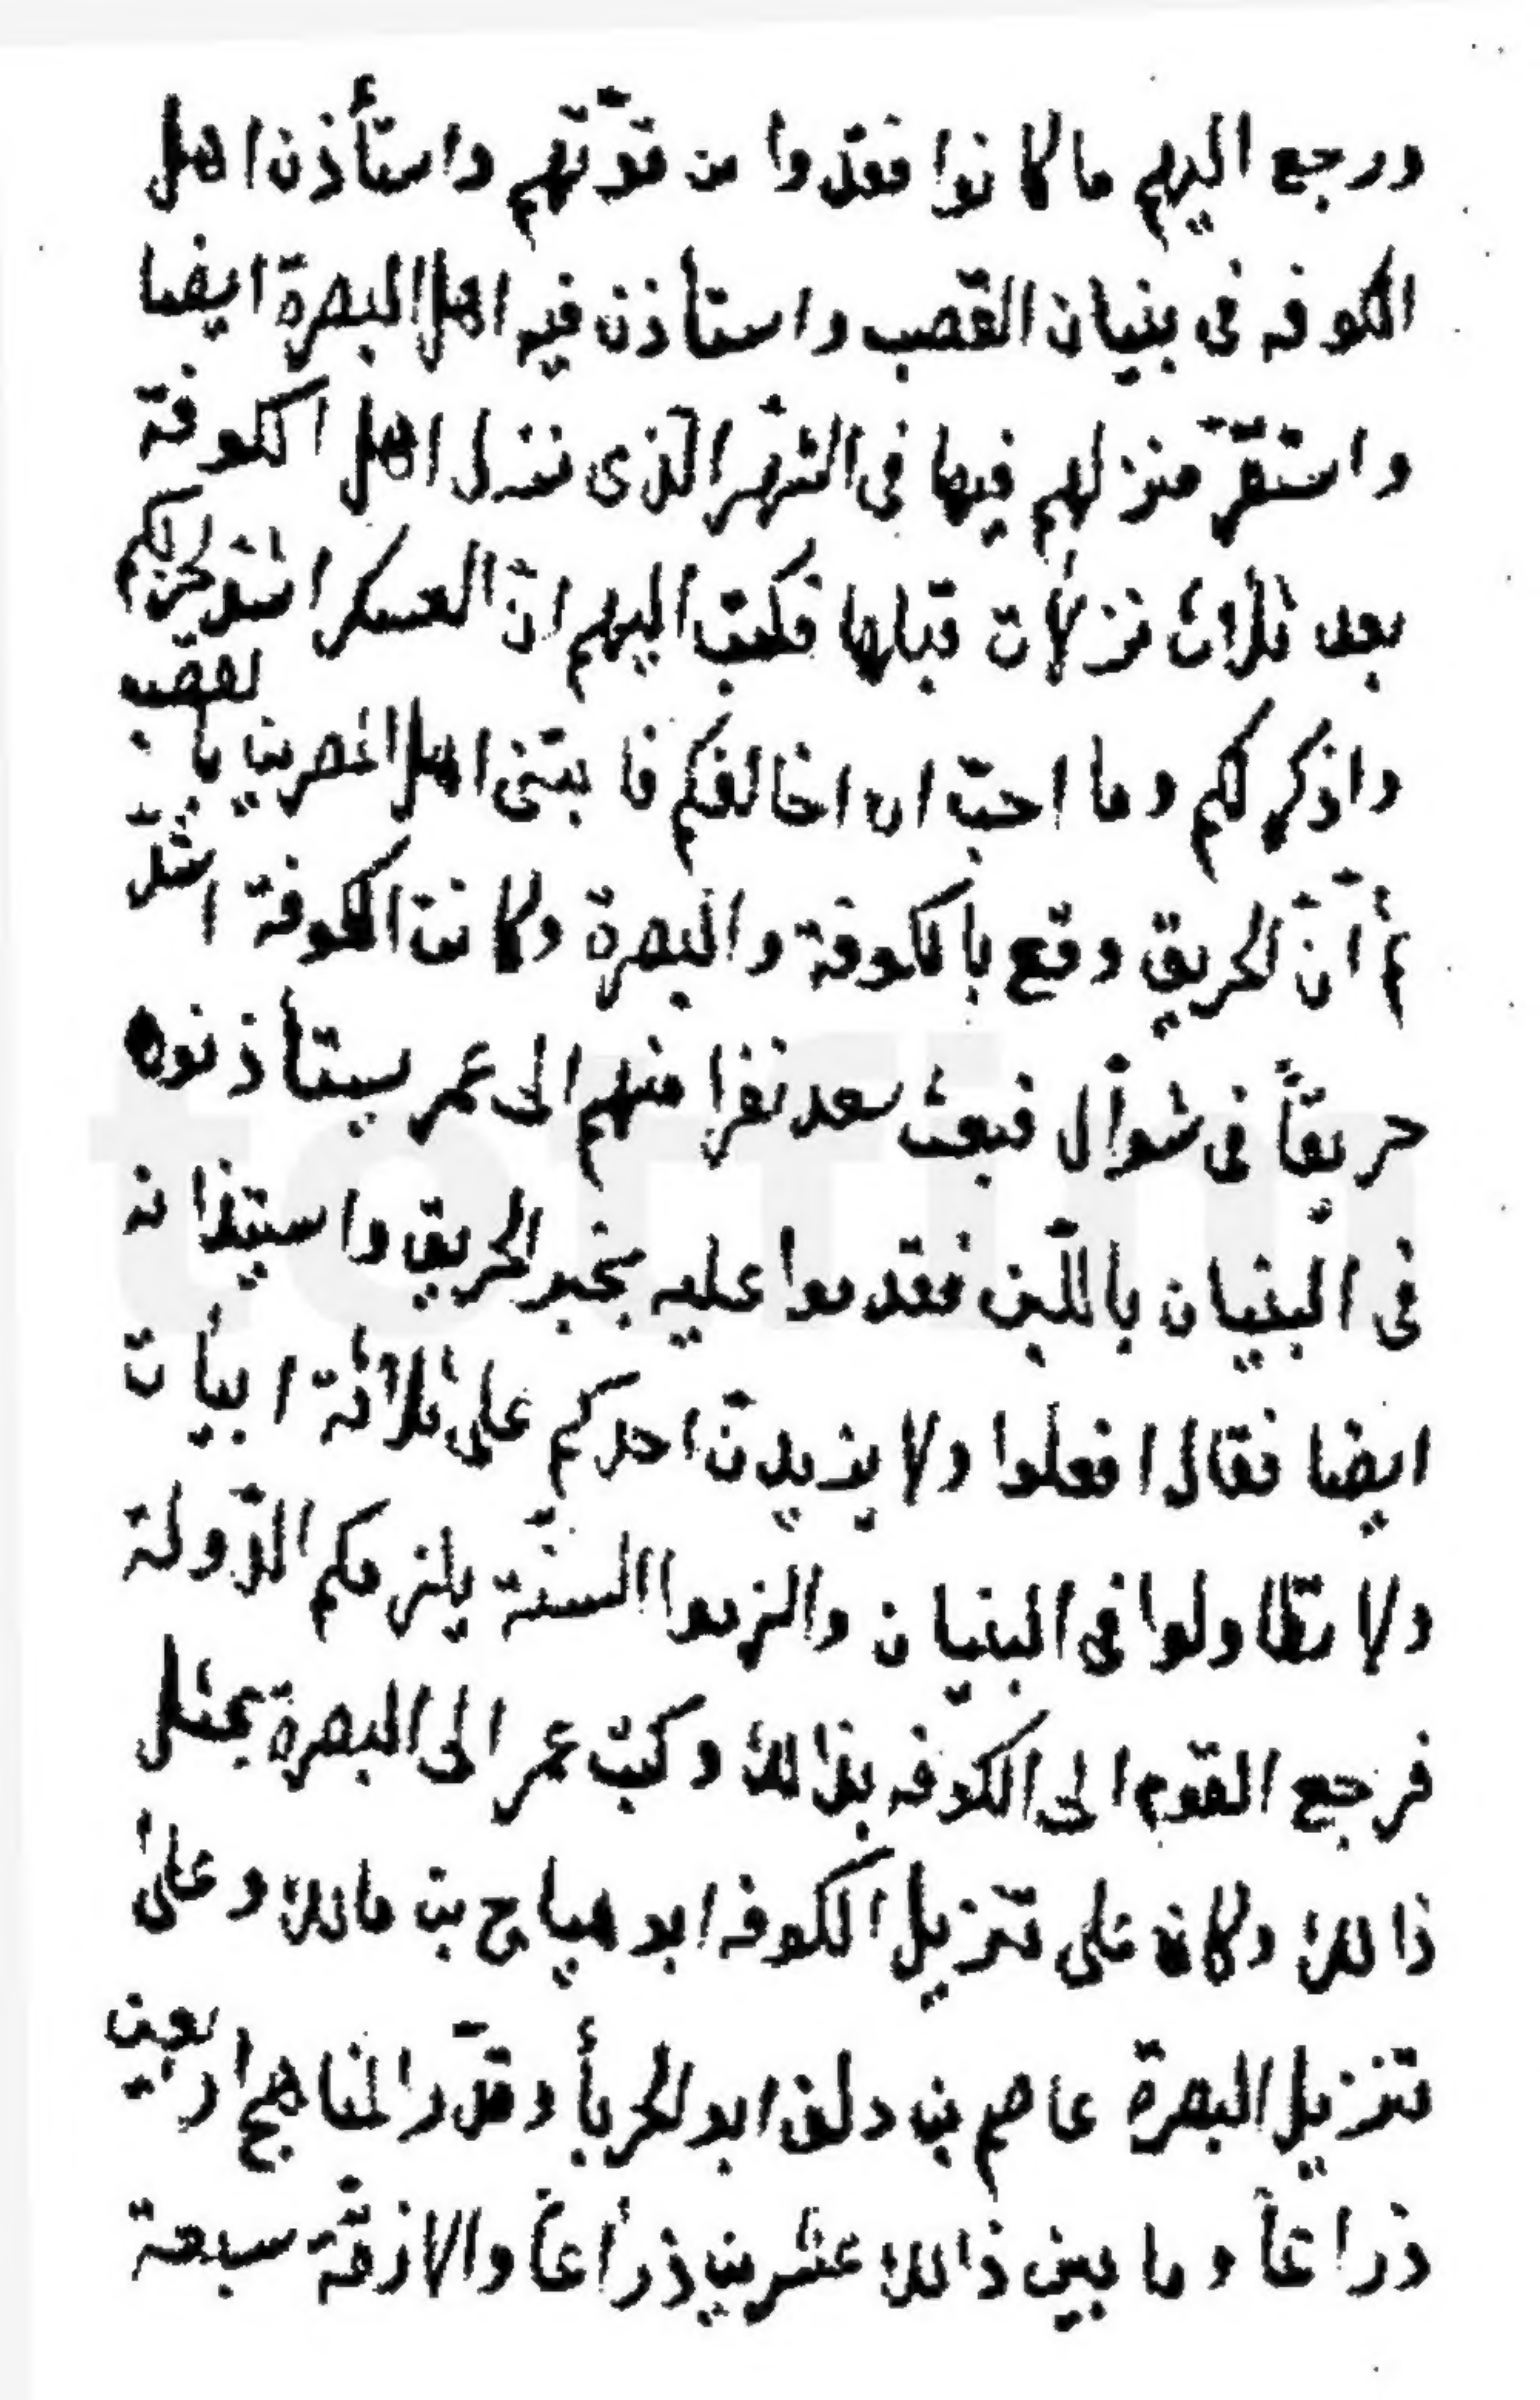 ورجع اليهم ما كانوا فقدوا من قوّتهم واستأذن اهل
الكوفه فى بنيان القصب واستاذن فيه اهل البصرة ايضا
واستقرّ منزلهم فيها فى الشهر الّذى نزل اهل الكوفة
بعد ثلاث نزلات قبلها فكتب اليهم انّ العسكر اشد لحربكم
واذكر لكم وما احبّ ان اخالفكم فابتنى اهل المصرين بالقصب
ثم انّ الحريق وقع بالكوفة والبصرة وكانت الكوفة اشدّ
حريقاً فى شوال فبعث سعد نفرا منهم الى عمر يستأذنوه
فى البنيان باللّبن فقدموا عليه بخبر الحريق واستيذانه
ايضا فقال افعلوا ولا يزيدنّ احدكم على ثلاثة ابيات
ولا تطاولوا فى البنيان والزموا السنّة يلزمكم الدّولة
فرجع القوم الى الكوفه بذالك وكتب عمر الى البصرة بمثل
ذالك وكان على تنزيل الكوفه ابو هياج بن مالك وعلى
تنزيل البصرة عاصم بن دلف ابو الحربأ وقدّر المناهج اربعين
ذراعاً وما بين ذالك عشرين ذراعاً والازقّة سبعة